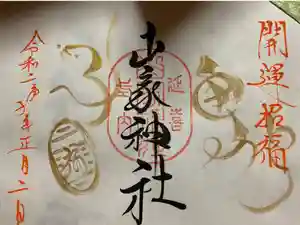 開運招福
延喜
式内
山家神社
令和二庚子年正月二日